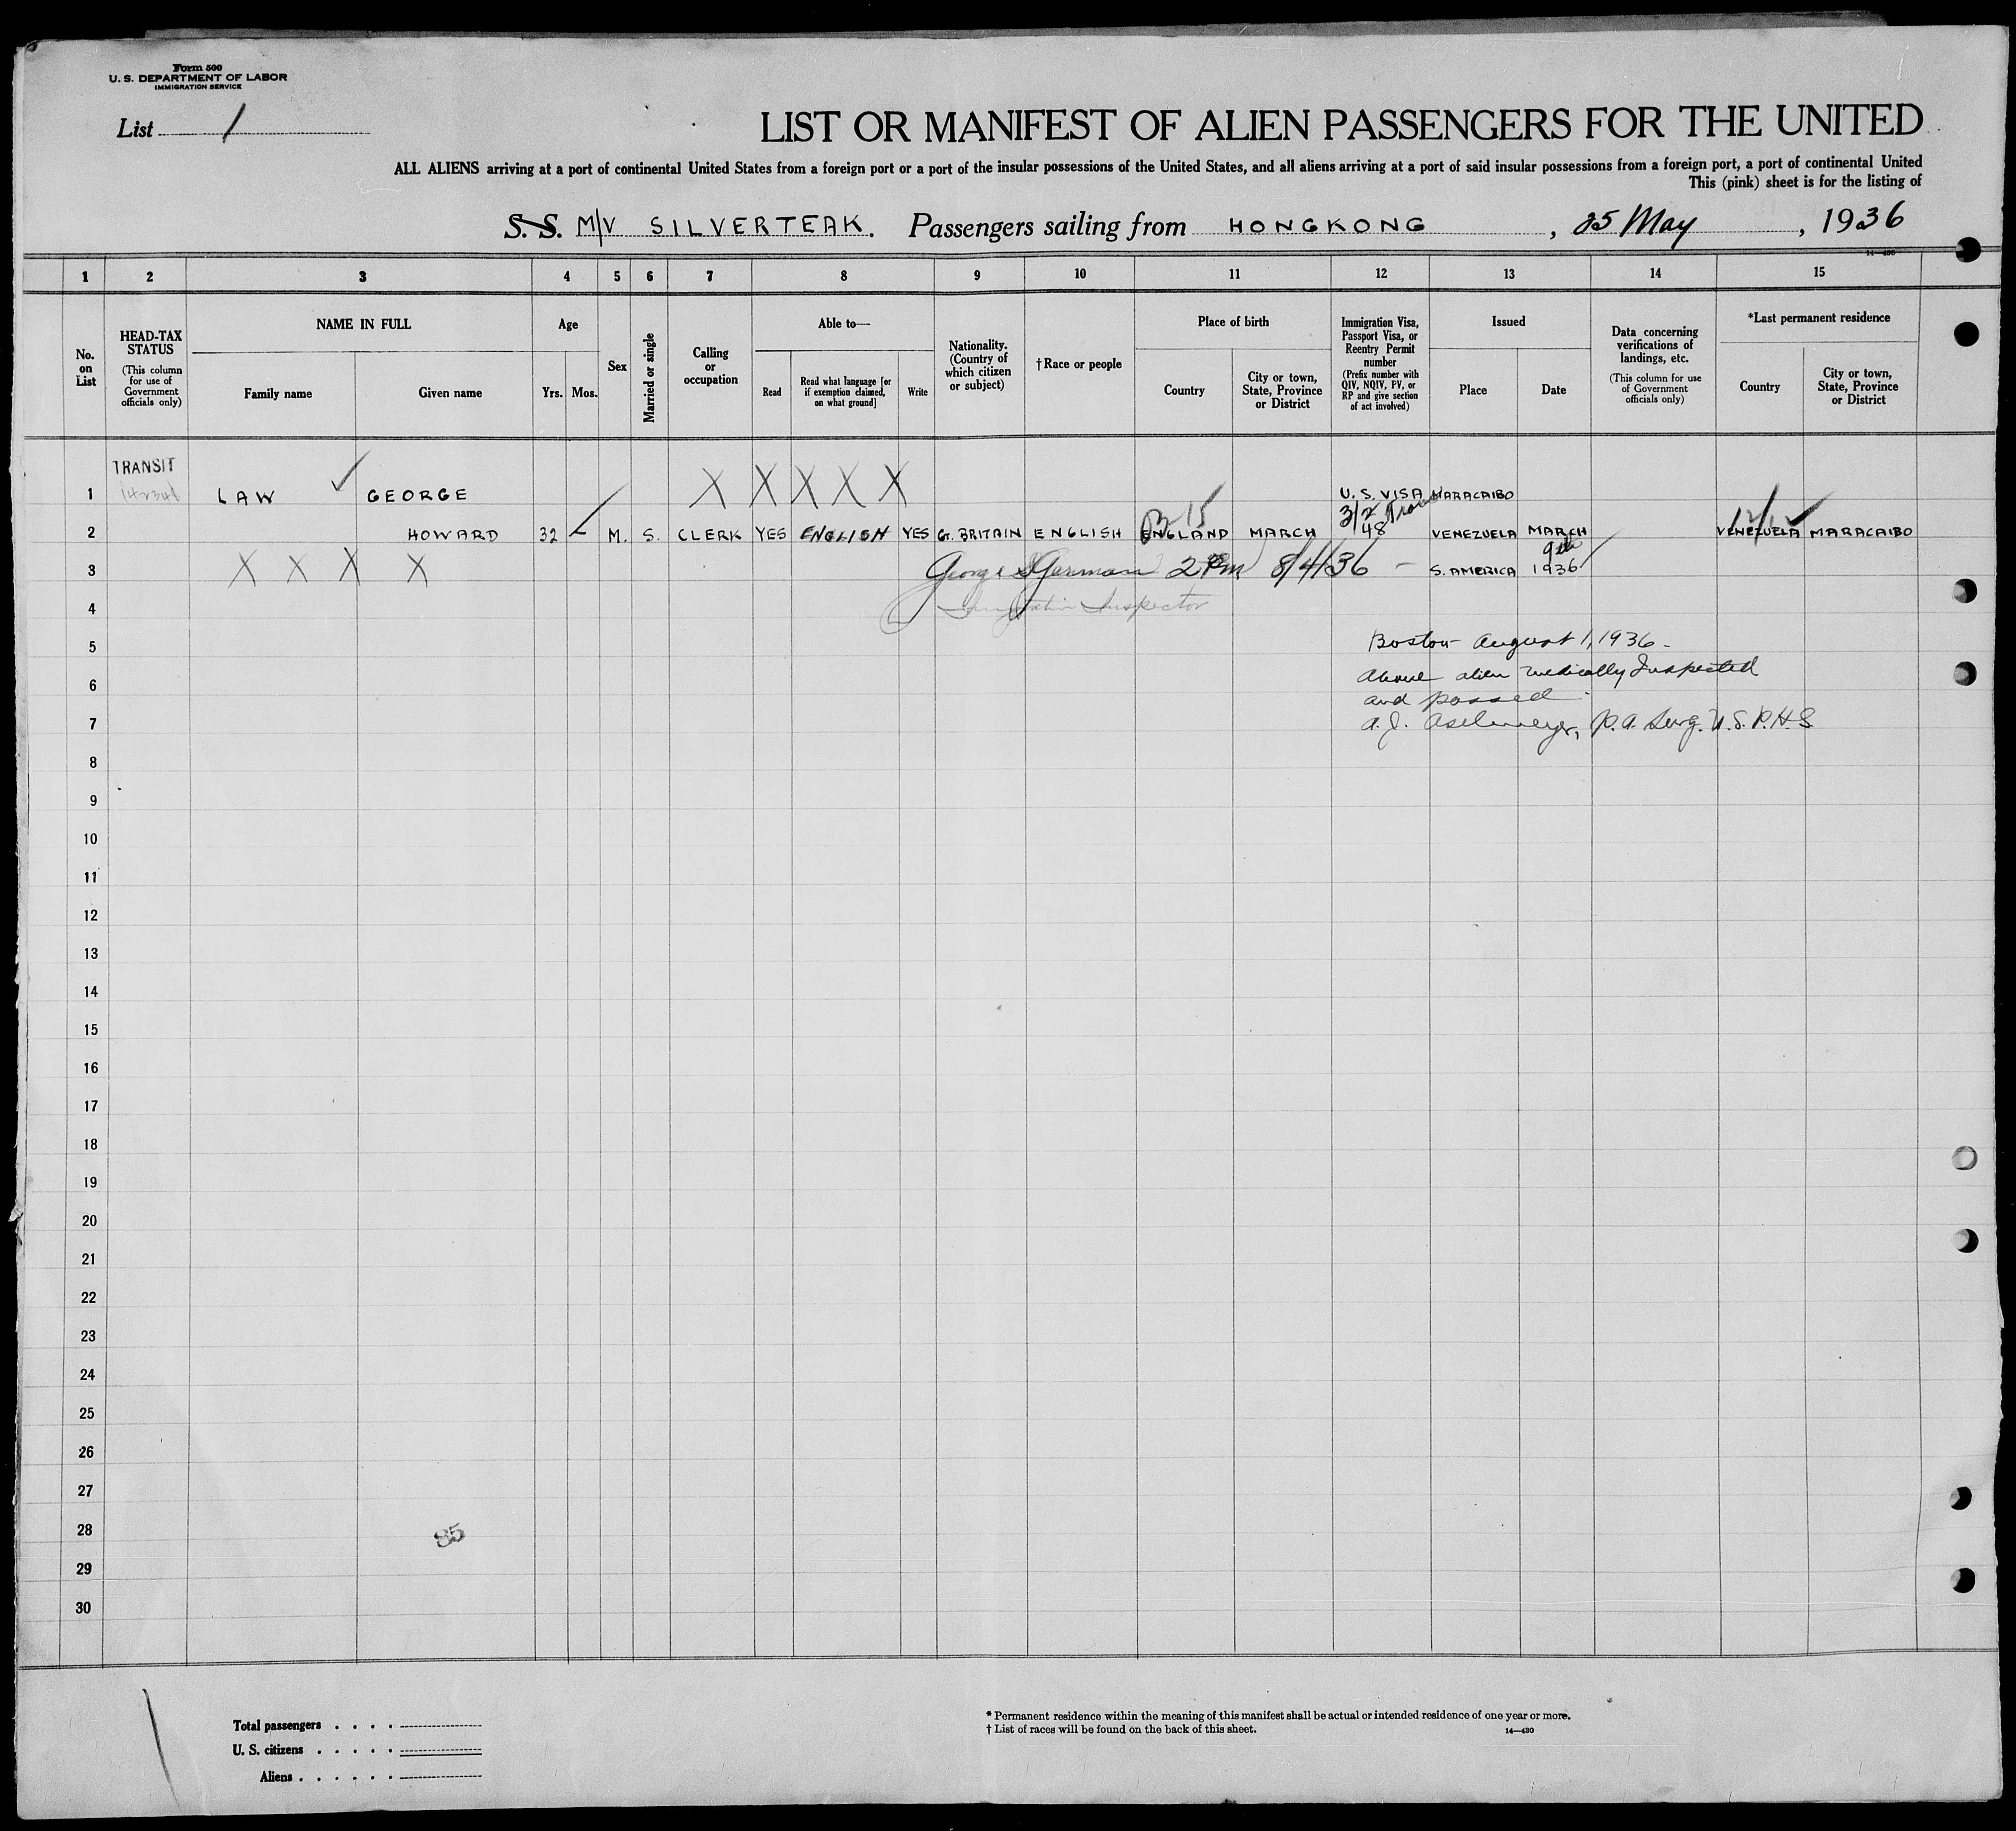 Form 500
U. S. DEPARTMENT OF LABOR
IMMIGRATION SERVICE
List 1
LIST OR MANIFEST OF ALIEN PASSENGERS FOR THE UNITED
ALL ALIENS arriving at a port of continental United States from a foreign port or a port of the insular possessions of the United States, and all aliens arriving at a port of said insular possessions from a foreign port, a port of continental United
This (pink) sheet is for the listing of
S. S. M/V SILVERTEAK. Passengers sailing from HONGKONG, 25 May, 1936
14—430
1 2 3 4 5 6 7 8 9 10 11 12 13 14 15
No. on List
HEAD-TAX STATUS
(This column for use of Government officials only)
NAME IN FULL
Family name
Given name
Age
Yrs.
Mos.
Sex
Married or single
Calling or occupation
Able to—
Read
Read what language [or if exemption claimed, on what ground]
Write
Nationality. (Country of which citizen or subject)
† Race or people
Place of birth
Country
City or town, State, Province or District
Immigration Visa, Passport Visa, or Reentry Permit number
(Prefix number with QIV, NQIV, PV, or RP and give section of act involved)
Issued
Place
Date
Data concerning verifications of landings, etc.
(This column for use of Government officials only)
*Last permanent residence
Country
City or town, State, Province or District
TRANSIT
1 LAW GEORGE X X X X X U. S. VISA MARACAIBO
B-15 3/2 12/12
2 HOWARD 32 M. S. CLERK YES ENGLISH YES GT. BRITAIN ENGLISH ENGLAND MARCH 48 VENEZUELA MARCH VENEZUELA MARACAIBO
9th
3 X X X X George S Gorman 2 Pm 8/4/36 – S. AMERICA 1936
4 Immigration Inspector
5 Boston – August 1, 1936 –
6 Above alien medically Inspected
and passed
7 A. J. Aselmeyer, P. A. Surg. U. S. P. H. S
8
9
10
11
12
13
14
15
16
17
18
19
20
21
22
23
24
25
26
27
28 85
29
30
Total passengers
U. S. citizens
Aliens
* Permanent residence within the meaning of this manifest shall be actual or intended residence of one year or more.
† List of races will be found on the back of this sheet. 14—430